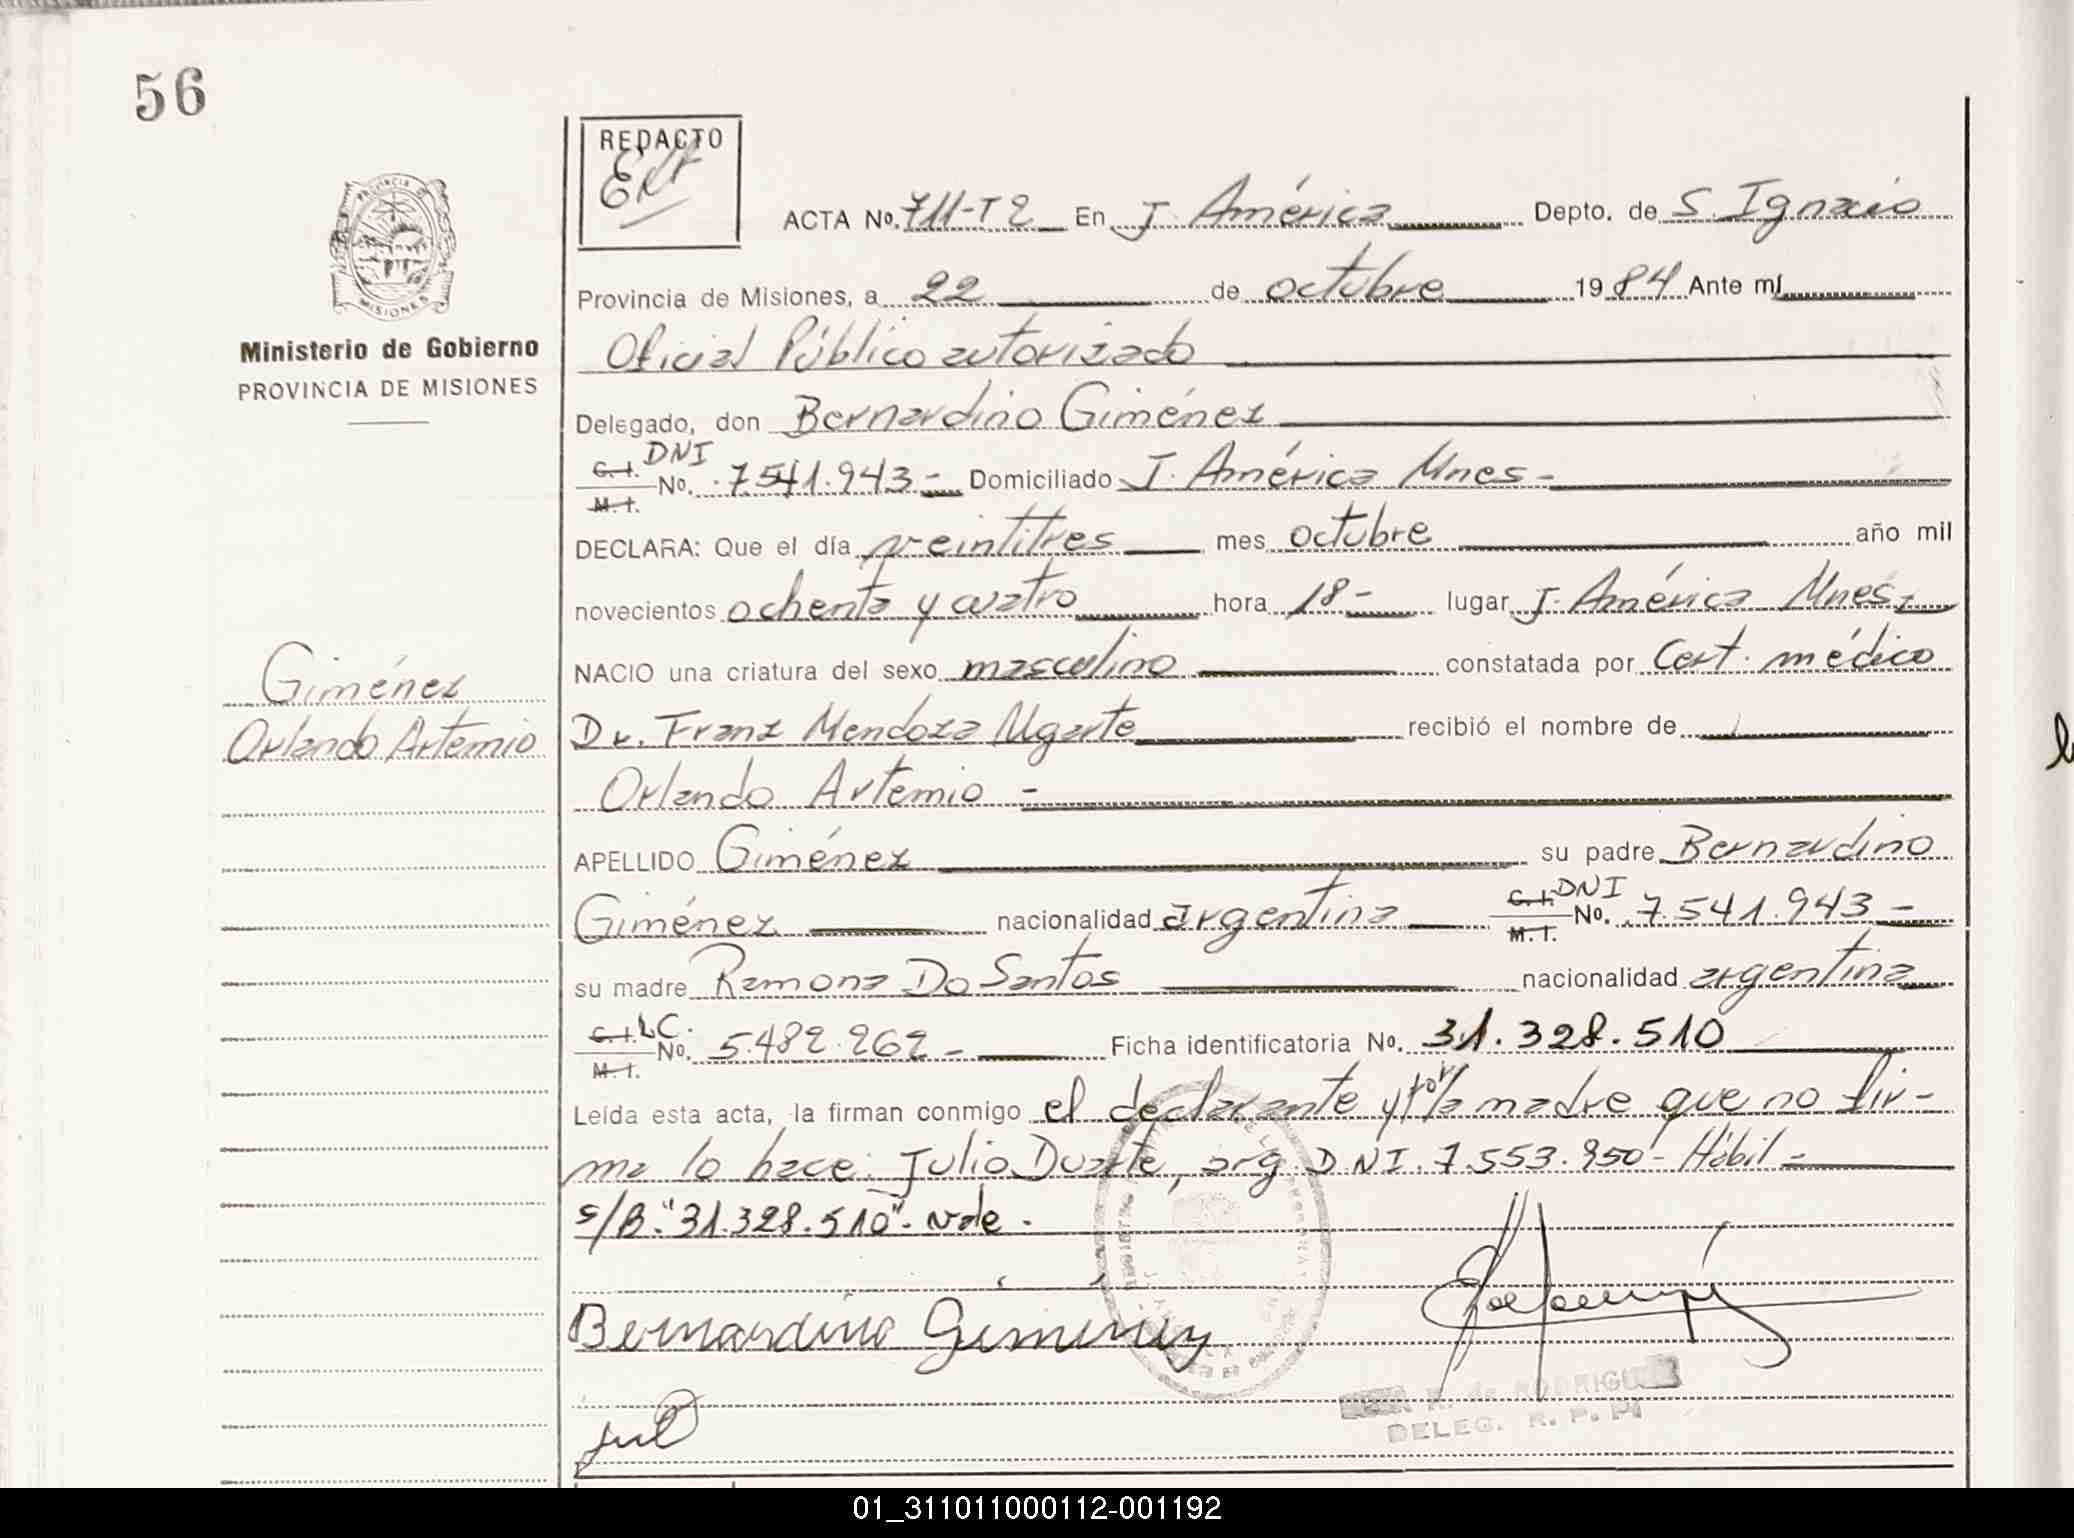 56
REDACTO
ACTA No. 711-T2 En J. América Depto. de S. Ignacio
PROVINCIA DE
MISIONES
Provincia de Misiones, a 22 de octubre 1984 Ante mí
Ministerio de Gobierno
PROVINCIA DE MISIONES
Oficial Público autorizado
Delegado, don Bernardino Giménez
C.I. DNI
M.I. No. 7.541.943 - Domiciliado J. América Mnes -
DECLARA: Que el día veintitres mes octubre año mil
novecientos ochenta y cuatro hora 18 - lugar J. América Mnes -
NACIO una criatura del sexo masculino constatada por Cert. médico
Giménez
Orlando Artemio
Dr. Franz Mendoza Ugarte recibió el nombre de
Orlando Artemio -
APELLIDO Giménez su padre Bernardino
Giménez nacionalidad argentina C.I. DNI M.I. No. 7.541.943 -
su madre Ramona Do Santos nacionalidad argentina
C.I. LC. M.I. No. 5.482.262 - Ficha identificatoria No. 31.328.510
Leída esta acta, la firman conmigo el declarante y por la madre que no fir-
ma lo hace: Julio Duarte, arg. D.N.I. 7.553.950 - Hábil -
s/B. "31.328.510" - vale.
Bernardino Gimenez
R. de RODRIGUEZ
DELEG. R. P. P.
01_311011000112-001192